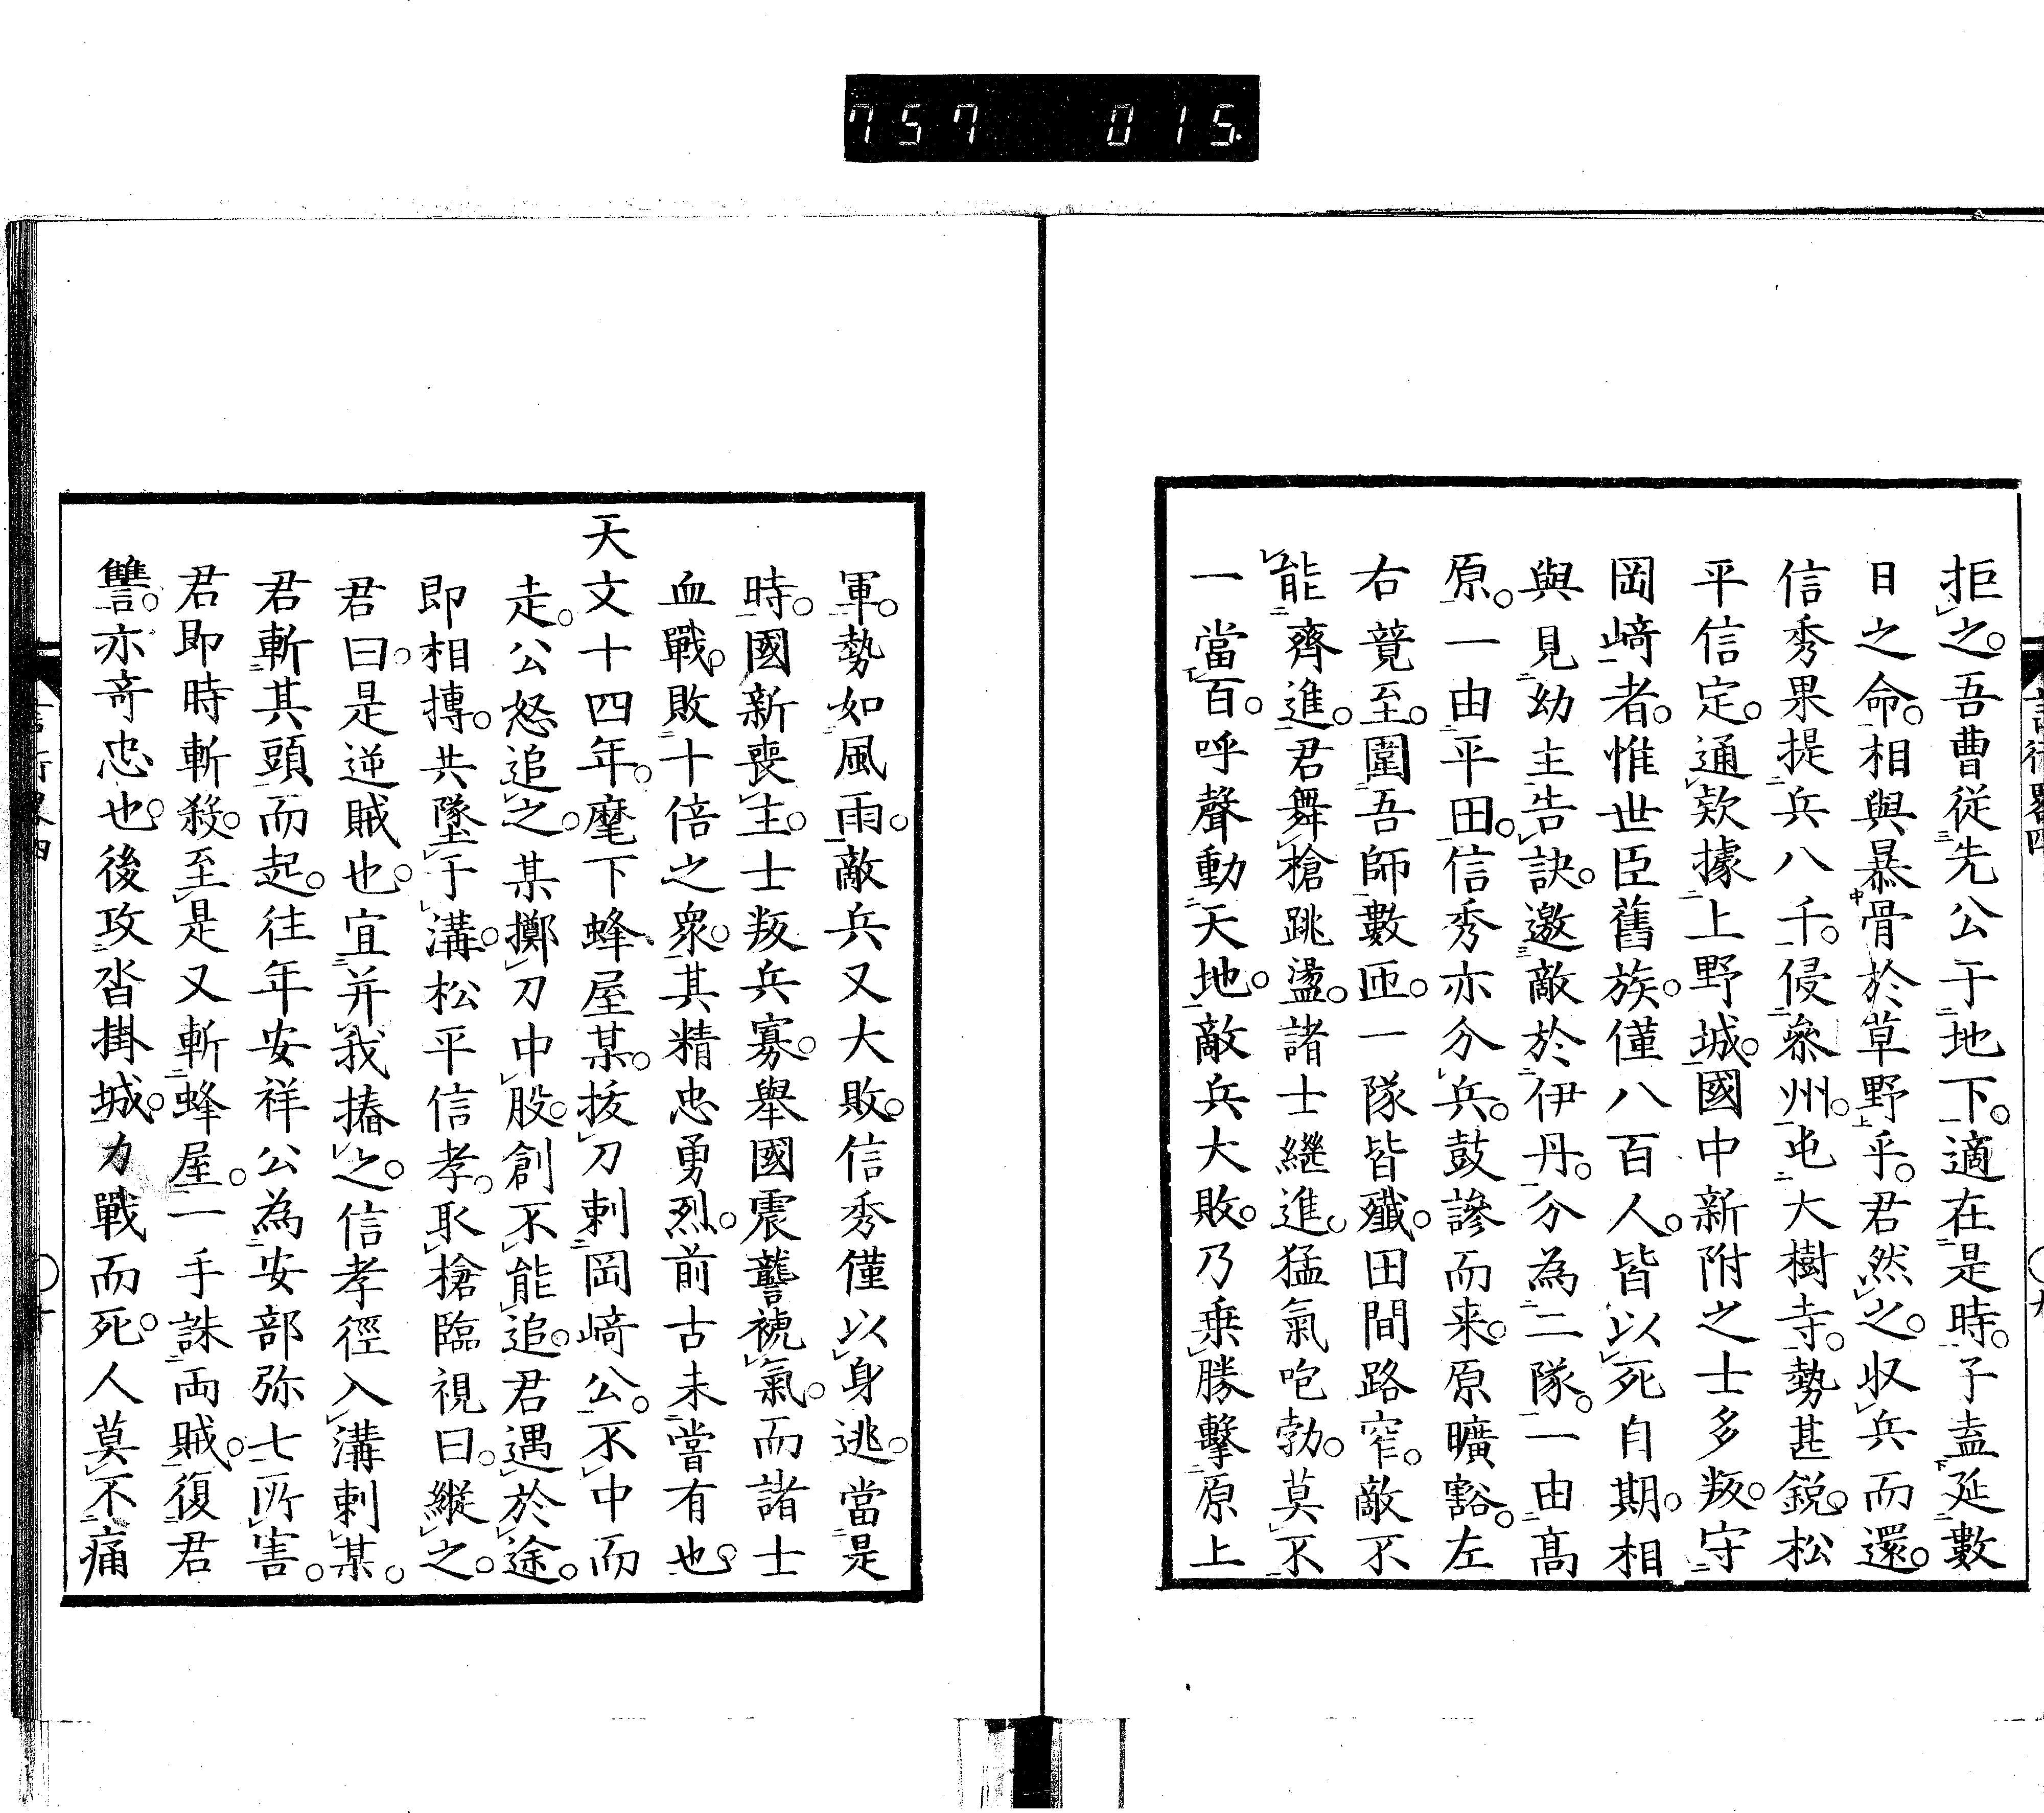 757 015
拒之。吾曹従先公于地下。適在是時。子盍延數
日之命。相與暴骨於草野乎。君然之。収兵而還。
信秀果提兵八千。侵叅州。屯大樹寺。勢甚鋭。松
平信定。通欵據上野城。國中新附之士多叛。守
岡﨑者。惟世臣舊族。僅八百人。皆以死自期。相
與見幼主告訣。邀敵於伊丹。分為二隊。一由髙
原。一由平田。信秀亦分兵。鼓譟而来。原曠豁。左
右竟至。圍吾師數匝。一隊皆殲。田間路窄。敵不
能齊進。君舞槍跳盪。諸士継進。猛氣咆勃。莫不
一當百。呼聲動天地。敵兵大敗。乃乗勝擊原上
軍。勢如風雨。敵兵又大敗。信秀僅以身逃。當是
時。國新喪主。士叛兵寡。舉國震讋褫氣。而諸士
血戰。敗十倍之衆。其精忠勇烈。前古未嘗有也。
天文十四年。麾下蜂屋某。拔刀刺岡﨑公。不中而
走。公怒追之。某擲刀中股。創不能追。君遇於途。
即相摶。共墜于溝。松平信孝。取槍臨視曰。縱之。
君曰。是逆賊也。宜并我摏之。信孝徑入溝刺某。
君斬其頭而起。往年安祥公為安部弥七所害。
君即時斬殺。至是又斬蜂屋。一手誅両賊。復君
讐。亦竒忠也。後攻沓掛城。力戰而死。人莫不痛